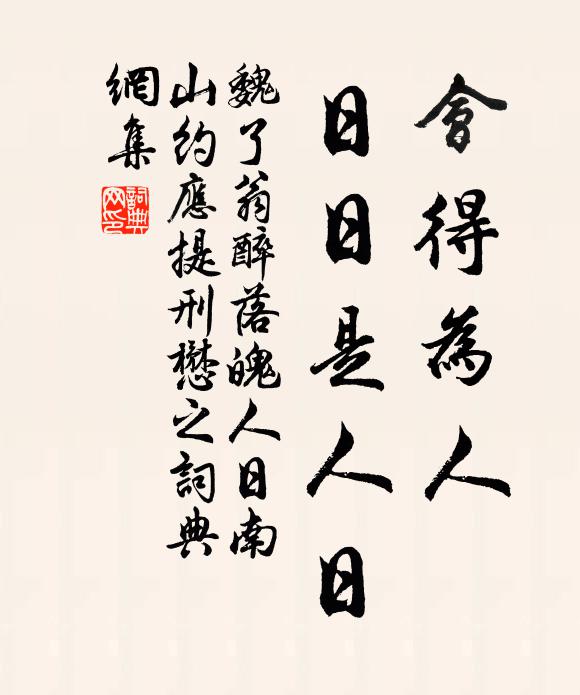 會得為人
日日是人日
魏了翁醉落魄人日南
山約應提刑懋之詞典
網集
詞典網印